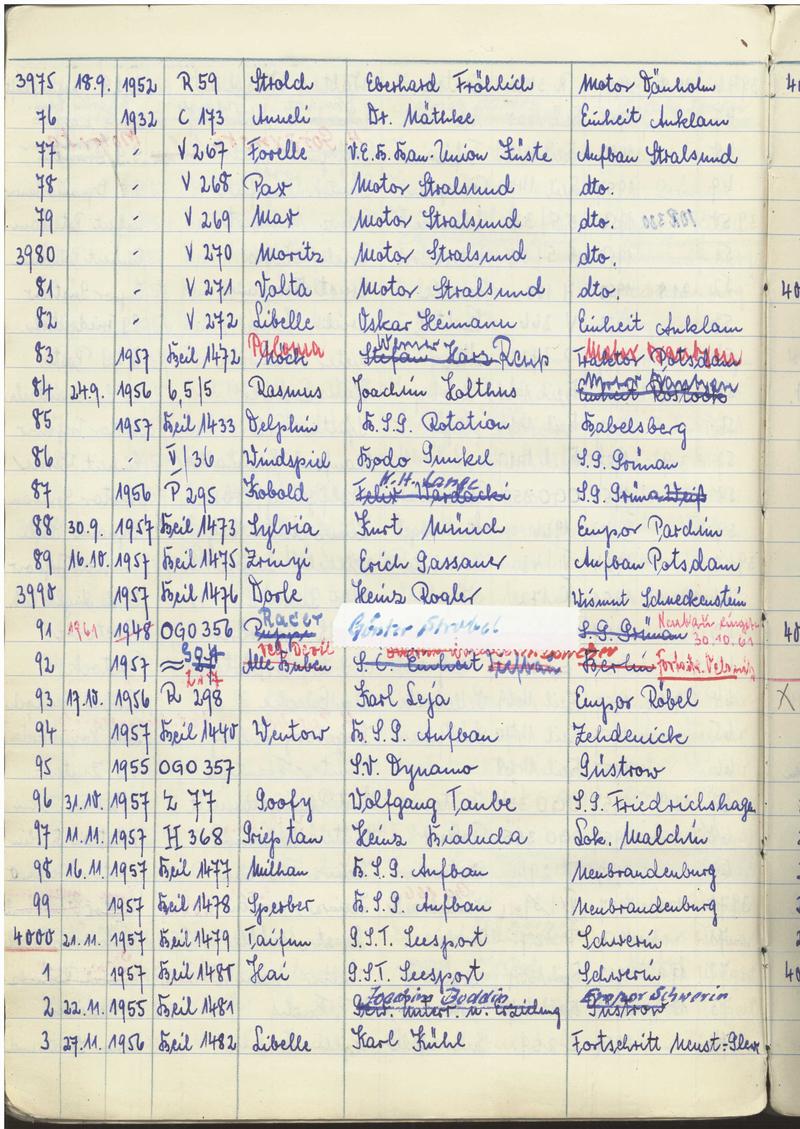 3975 18.9. 1952 R 59 Strolch Eberhard Fröhlich Motor Dänholm
76 1932 C 173 Anneli Dr. Näthke Einheit Anklam
77 - V 267 Forelle V.E.B. Bau-Union Küste Aufbau Stralsund
78 - V 268 Pax Motor Stralsund dto.
79 - V 269 Max Motor Stralsund dto.
3980 - V 270 Moritz Motor Stralsund dto.
81 - V 271 Volta Motor Stralsund dto.
82 - V 272 Libelle Oskar Heimann Einheit Anklam
Paloma Werner Motor
83 1957 Beil 1472 Stefan Harz Rupp Traktor Potsdam
Motor Bautzen
84 24.9. 1956 6,5/5 Rasmus Joachim Holthus Einheit Rostock
85 1957 Beil 1433 Delphin B.S.G. Rotation Babelsberg
86 V/36 Windspiel Bodo Gunkel S.G. Grünau
H.H. Lange
87 1956 P 295 Kobold Felix S.G. Grünau Weiß
88 30.9. 1957 Beil 1473 Sylvia Kurt Münch Empor Parchim
89 16.10. 1957 Beil 1475 Zrinyi Erich Gassauer Aufbau Potsdam
3990 1957 Beil 1476 Dorle Heinz Rogler Wismut Schneckenstein
Racer Neubau
91 1961 1948 OGO 356 Günter S.G. Grünau 30.10.61
92 1957 Alte Buben S.C. Einheit Berlin
93 17.10. 1956 R 298 Karl Leja Empor Röbel
94 1957 Beil 1440 Wentow B.S.G. Aufbau Zehdenick
95 1955 OGO 357 S.V. Dynamo Güstrow
96 31.10. 1957 Z 77 Goofy Wolfgang Taube S.G. Friedrichshagen
97 11.11. 1957 H 368 Heinz Bialucha Lok. Malchin
98 16.11. 1957 Beil 1477 Milhan B.S.G. Aufbau Neubrandenburg
99 1957 Beil 1478 Sperber B.S.G. Aufbau Neubrandenburg
4000 21.11. 1957 Beil 1479 Taifun G.S.T. Seesport Schwerin
1 1957 Beil 1480 Hai G.S.T. Seesport Schwerin
Joachim Boddin Empor Schwerin
2 22.11. 1955 Beil 1481 Gew. Unterr. u. Erziehung Güstrow
3 27.11. 1956 Beil 1482 Libelle Karl Kühl Fortschritt Neust.-Glew